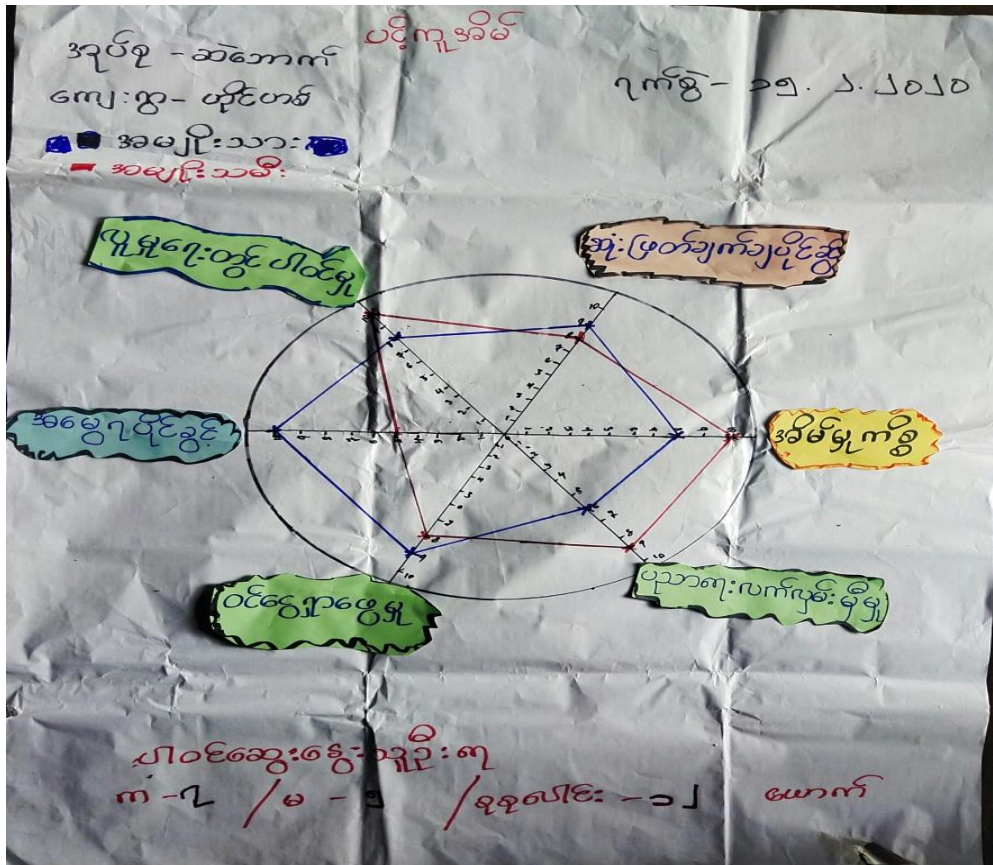 ပင့်ကူအိမ်
အုပ်စု - ဆဲဘောက်
ကျေးရွာ - ဟိုင်ဟစ်
ရက်စွဲ - ၁၅.၂.၂၀၂၀
အမျိုးသား
အမျိုးသမီး
လူမှုရေးတွင် ပါဝင်မှု
ဆုံးဖြတ်ချက်ချပိုင်ဆိုင်
အမွေရပိုင်ခွင့်
အိမ်မှုကိစ္စ
ဝင်ငွေရှာဖွေမှု
ပညာရေးလက်လှမ်းမှီမှု
ပါဝင်ဆွေးနွေးသူဦးရေ
ကျား - ၇ / မ - ၅ / စုစုပေါင်း - ၁၂ ယောက်